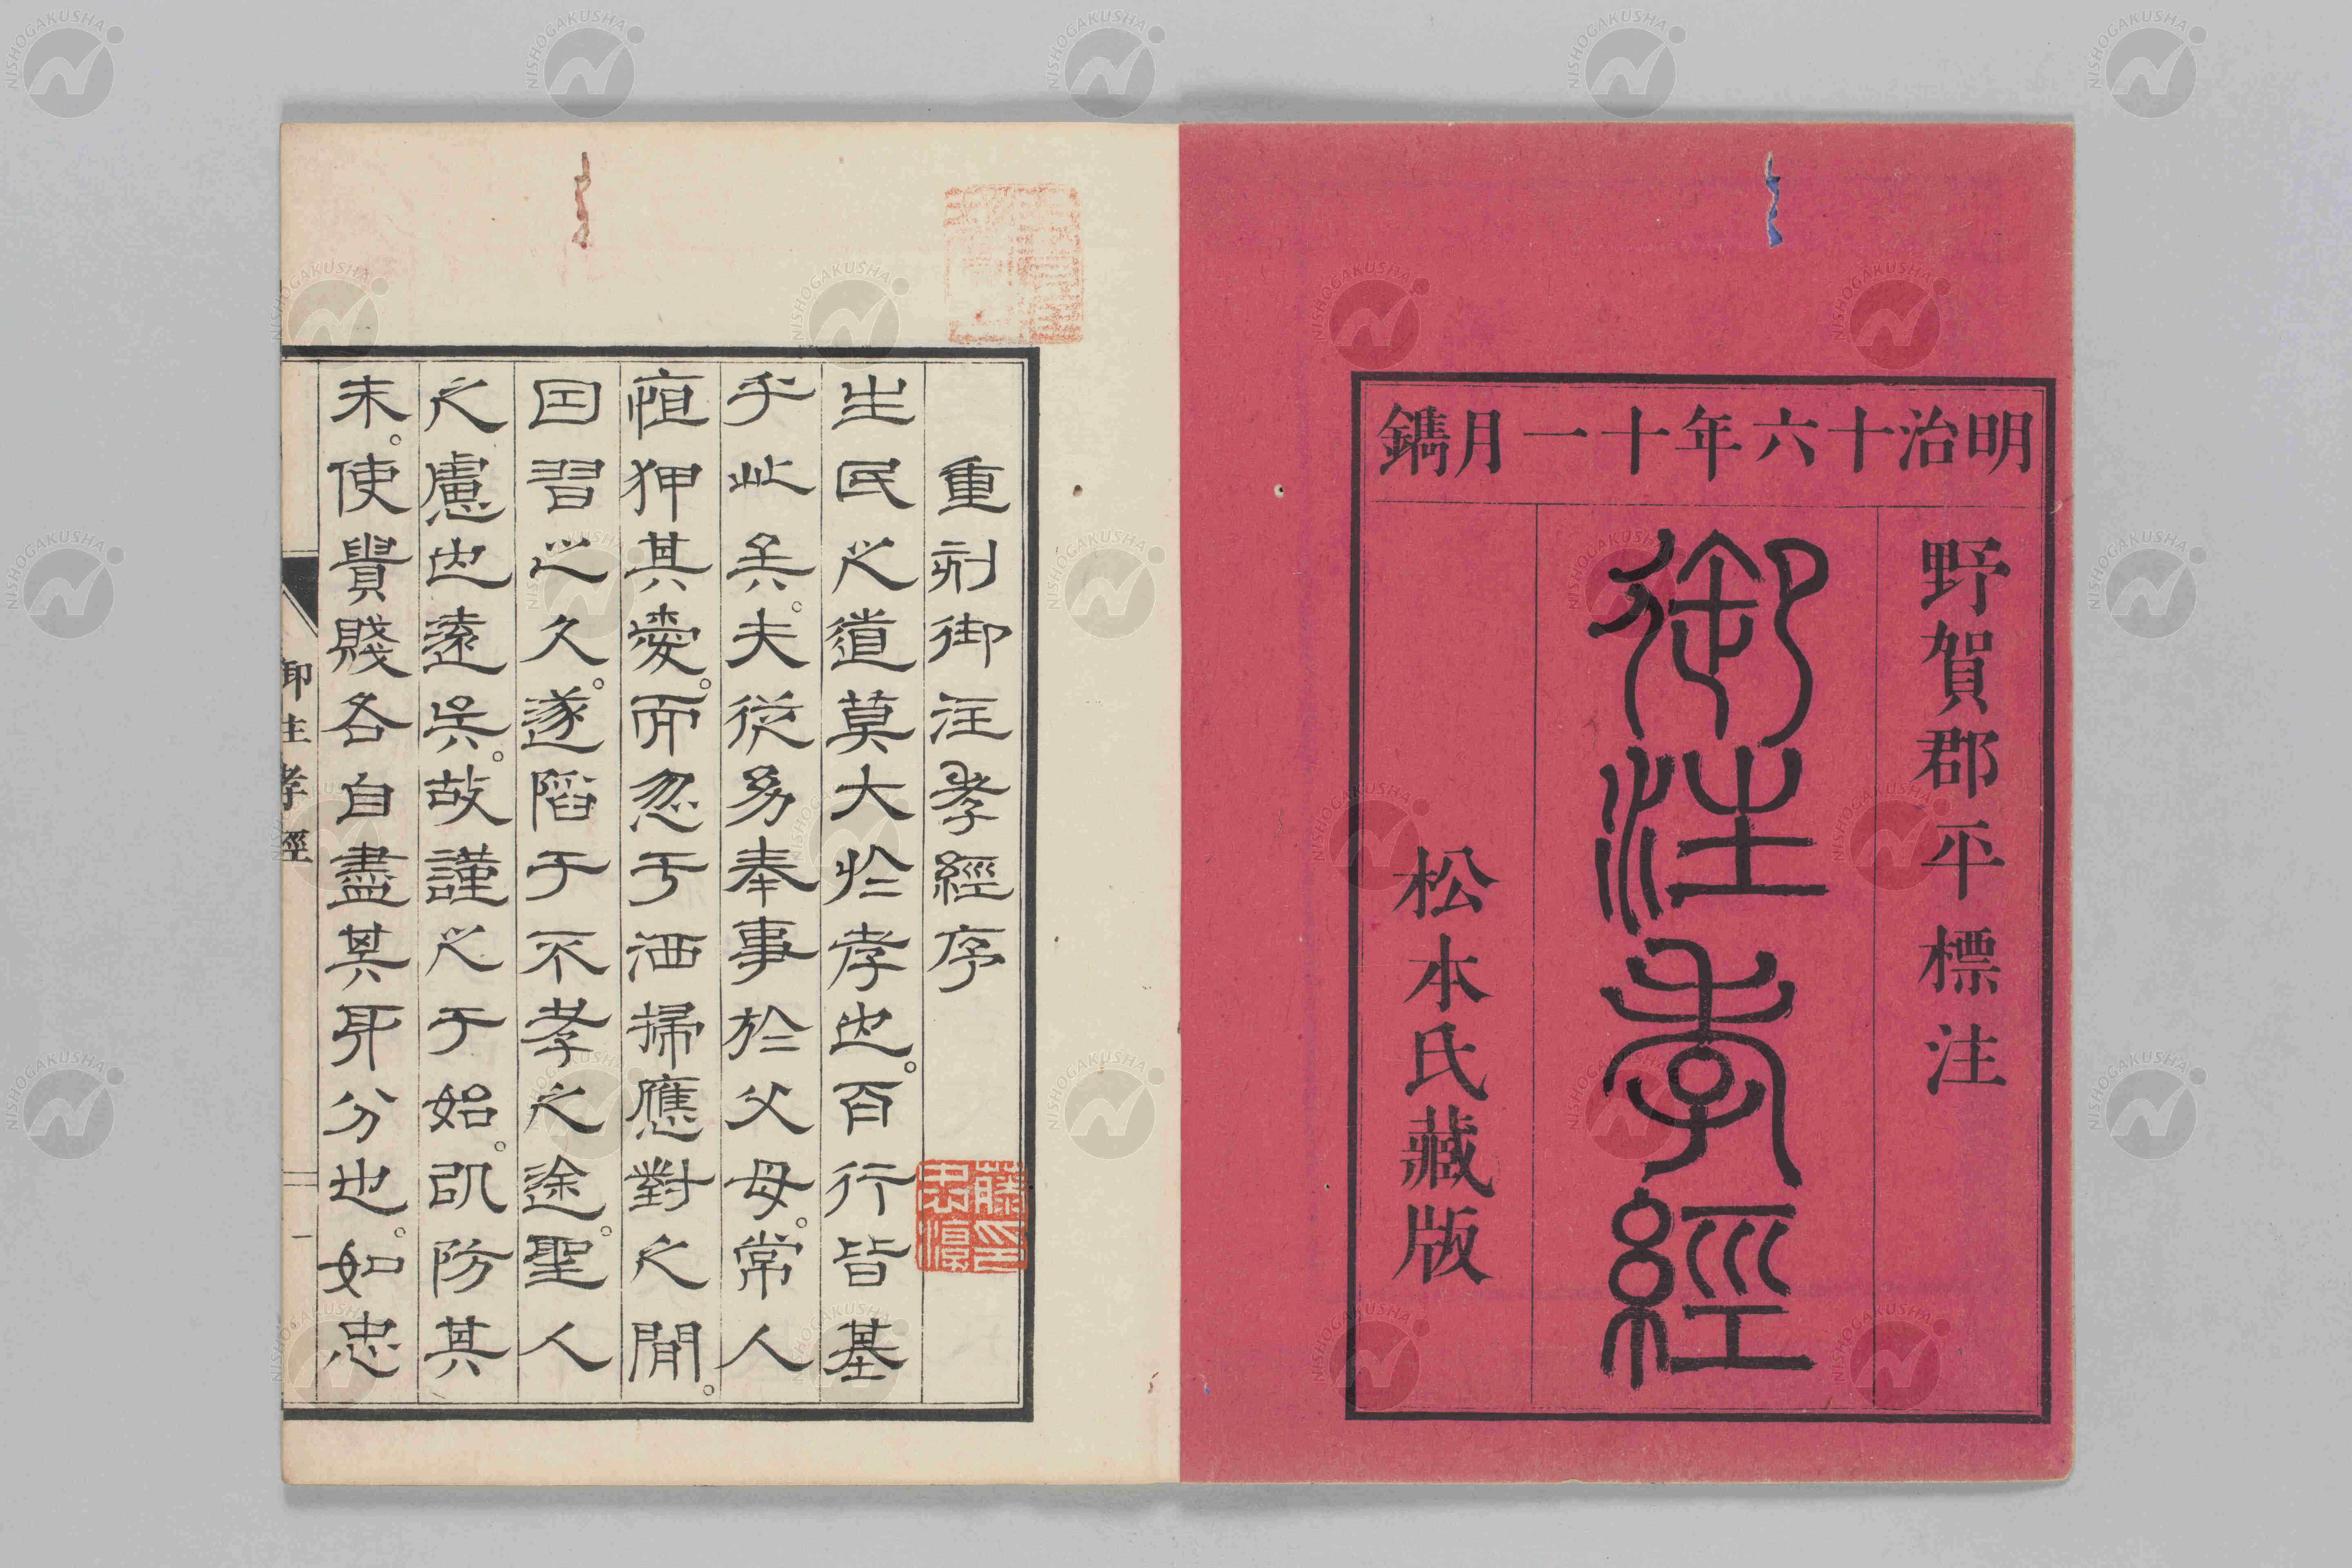 明治十六年十一月鐫
野賀郡平標注
御注孝經
松本氏藏版
重刻御注孝經序
生民之道莫大於孝也。百行皆基
乎此矣。夫從幼奉事於父母。常人
恒狎其愛。而忽于洒掃應對之間。
因習之久。遂陷于不孝之途。聖人
之慮也遠矣。故謹之于始。以防其
末。使貴賤各自盡其職分也。如忠
御注孝經
一
NISHOGAKUSHA